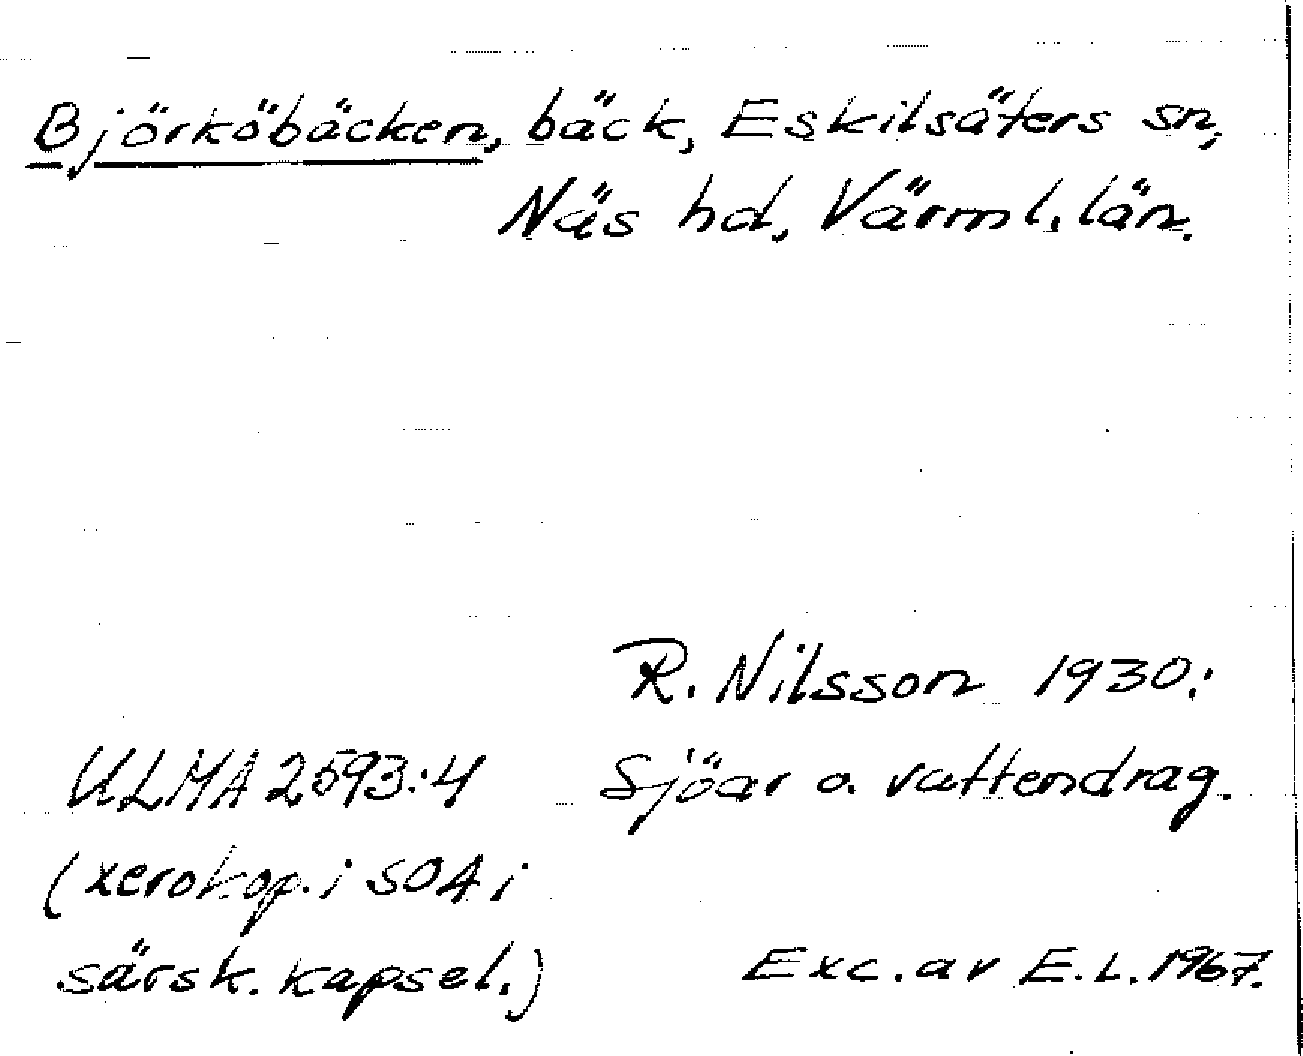 Björköbäcken, bäck, Eskilsäters sn,
Näs hd, Värml. län.
R. Nilsson 1930:
Sjöar o. vattendrag.
ULMA 2593:4
(xerokop. i SOA i
särsk. kapsel.)
Exc. av E.L. 1967.